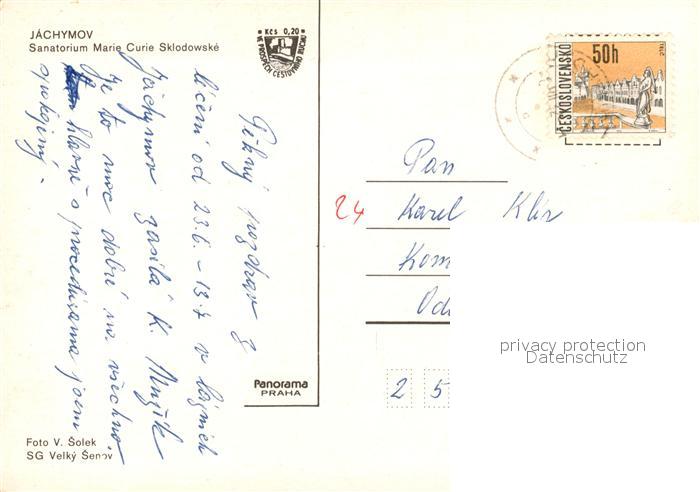 JÁCHYMOV
Sanatorium Marie Curie Sklodowské
Kčs 0,20
VE PROSPĚCH CESTOVNÍHO RUCHU
Pěkný pozdrav z
léčení od 23.6. - 13.7 v lázních
Jáchymov zasílá K.
Je to moc dobré na všechno,
hlavně s procedurama jsem
spokojený.
Panorama
PRAHA
Foto V. Šolek
SG Velký Šenov
ČESKOSLOVENSKO
50h
TELČ
Pan
24 Karel
Kom
2 5
privacy protection
Datenschutz